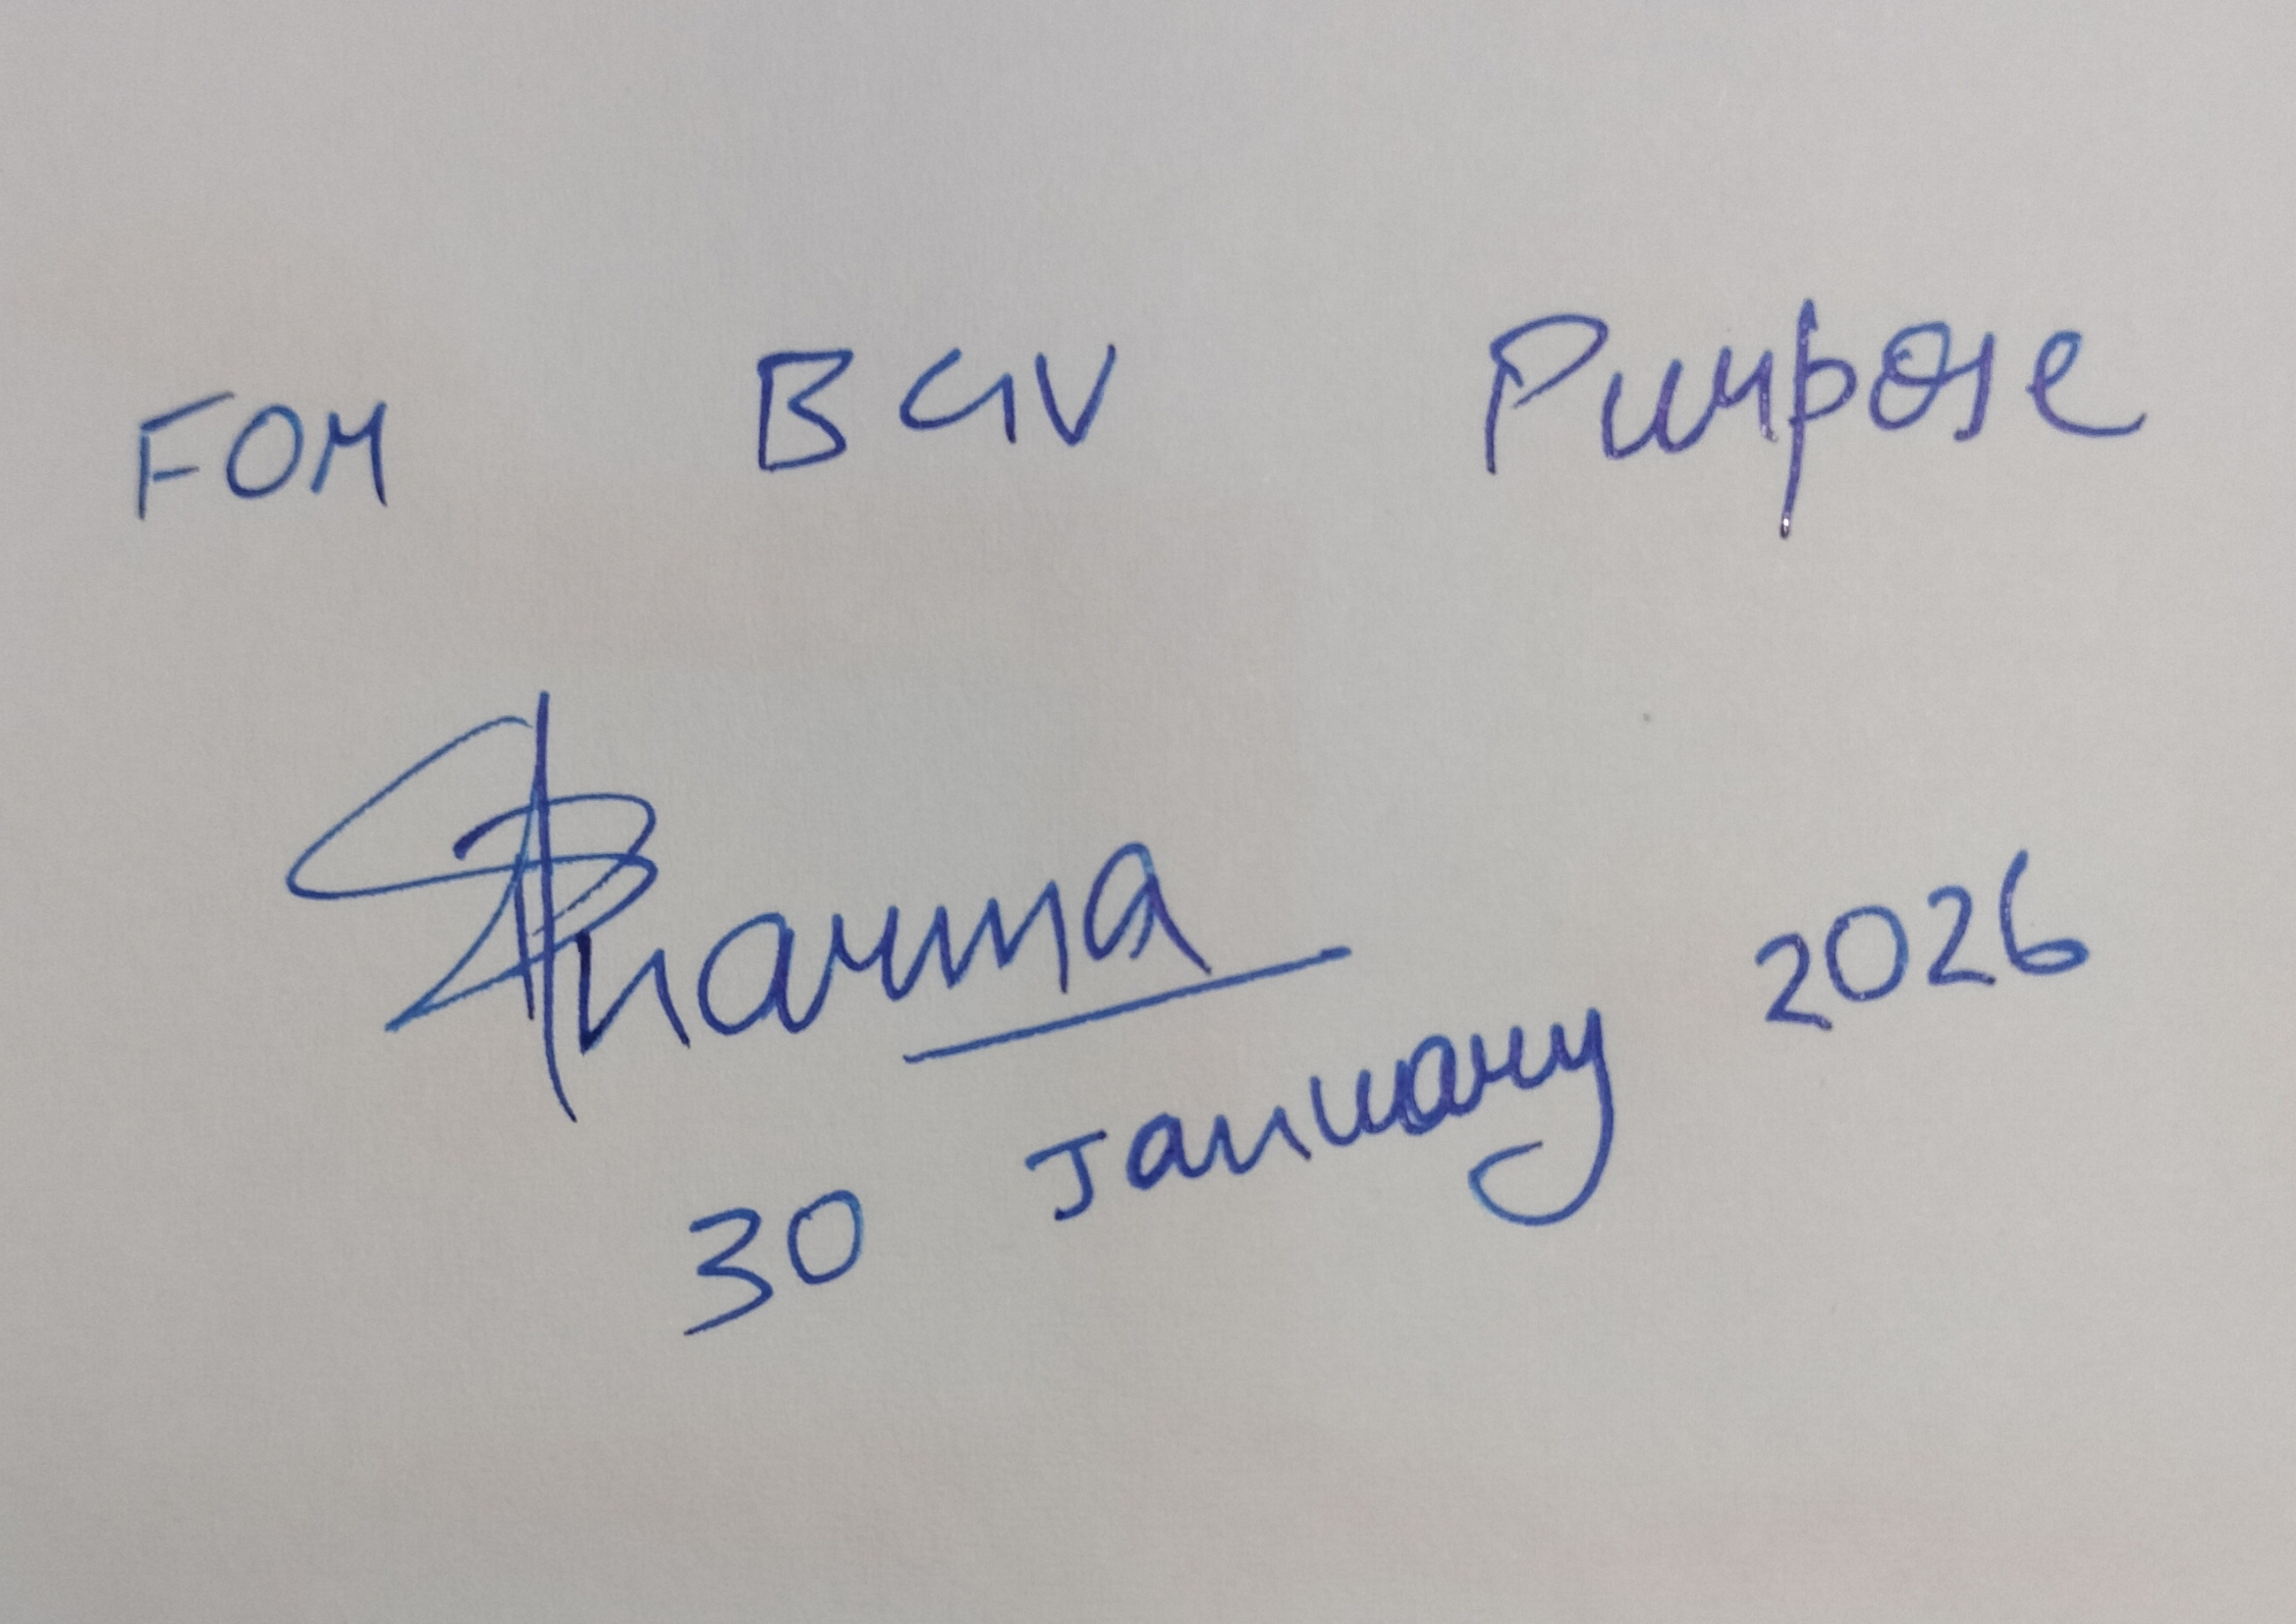 For BGV Purpose
Sharma
30 January 2026